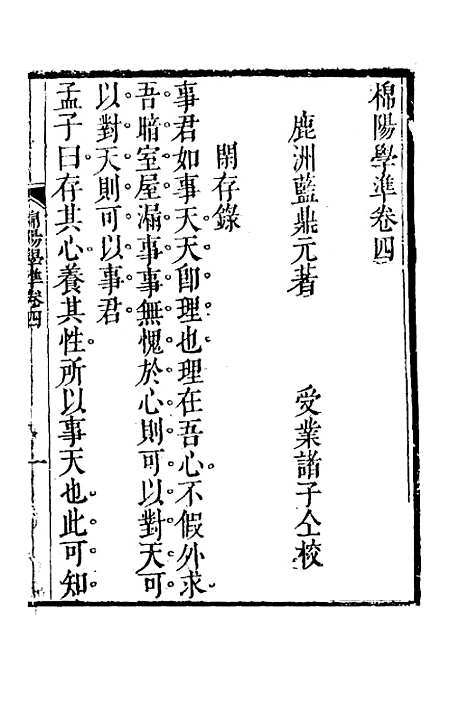 棉陽學準卷四
鹿洲藍鼎元著　受業諸子仝校
閑存錄
事君如事天天卽理也理在吾心不假外求
吾暗室屋漏事事無愧於心則可以對天可
以對天則可以事君
孟子曰存其心養其性所以事天也此可知
棉陽學準卷四
一